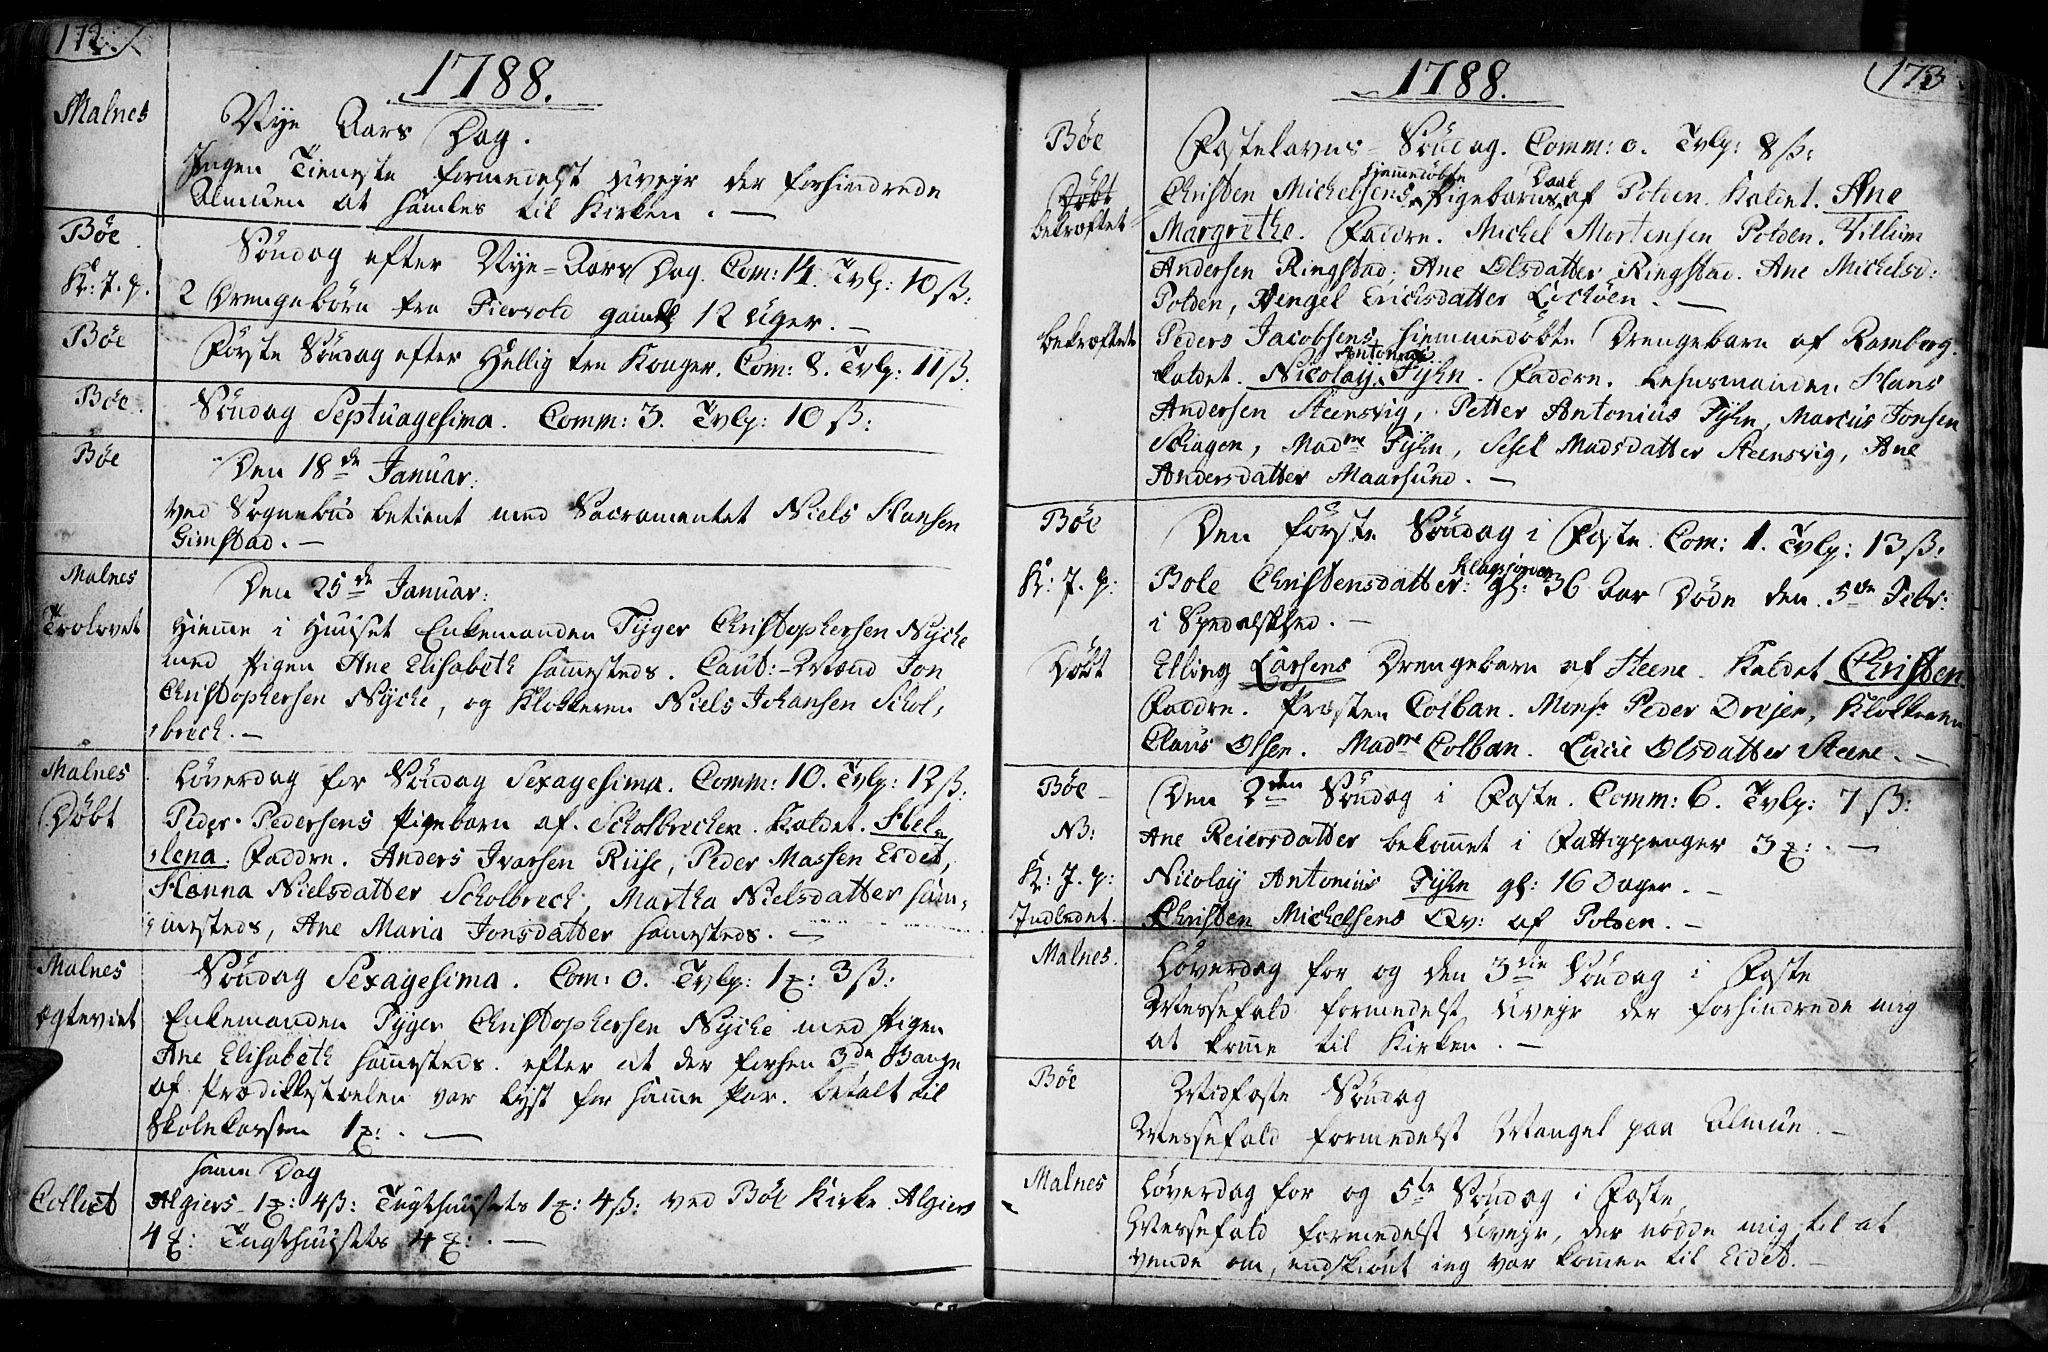 172.
1788.
Malnes
Nye Aars Dag.
Ingen Tieneste formedelst Uvejr der forhindrede
Almuen at samles til Kirken. —
Bøe.
Søndag efter Nye-Aars Dag. Com: 14. Tvlp: 10 ß:
K: J. p.
2 Drengebørn fra Fiervold gaml 12 Uger. —
Bøe
Første Søndag efter Hellig tre Konger. Com: 8. Tvlp: 11 ß.
Bøe.
Søndag Septuagesima. Comm: 3. Tvlp: 10 ß:
Bøe
Den 18de Januar:
ved Sognebud betient med Sacramentet Niels Hansen
Gimstad. —
Malnes
Den 25de Januar:
Trolovet
Hieme i Huuset Enkemanden Tyger Christophersen Nyche
med Pigen Ane Elisabeth samesteds. Caut:-Mænd Jon
Christophersen Nyche, og Klokkeren Niels Johansen Schol,
,brech. —
Malnes
Løverdag for Søndag Sexagesima. Comm: 10. Tvlp: 12 ß:
Døbt
Peder Pedersens Pigebarn af Scholbrechen. Kaldet. Hel,
,lena. Faddre. Anders Ivarsen Riise, Peder Massen Eidet,
Hanna Nielsdatter Scholbrech, Martha Nielsdatter sam,
,mesteds, Ane Maria Jonsdatter samesteds. —
Malnes
Søndag Sexagesima. Com: 0. Tvlp: 1 : 3 ß:
Ægteviet
Enkemanden Tyger Christophersen Nyche med Pigen
Ane Elisabeth samesteds. efter at der forhen 3de Gange
af Prædikkestoelen var lyst for same Par. betalt til
Skolekassen 1 : . —
same Dag
Collect
Algiers 1 : 4 ß: Tugthuusets 1 : 4 ß: ved Bøe Kirke Algiers
4 : Tugthuusets 4 : . —
173
1788.
Bøe
Fastelavns-Søndag. Comm: 0. Tvlp: 8 ß:
hjemmedøbte
Døbt
Christen Michelsens Pigebarn af Polden. Kaldet. Ane
bekræftet
Margrethe. Faddre. Michel Mortensen Polden. Villum
Andersen Ringstad. Ane Olsdatter Ringstad. Ane Michelsd:
Polden, Engel Erichsdatter —
bekræftet
Peders Jacobsens hiemmedøbte Drengebarn af Ramberg.
Antonius
kaldet. Nicolay Fyhn. Faddre. Lehnsmanden Hans
Andersen Steensvig, Petter Antonius Fyhn, Marcus Jonsen
Schagen, Madme Fyhn, Sesel Madsdatter Steensvig, Ane
Andersdatter Maarsund. —
Bøe
Den første Søndag i Faste. Com: 1. Tvlp: 13 ß:
K: J. p:
Bole Christensdatter: gl: 36 Aar døde den 5de Febr:
i Spedalskhed. —
Døbt
Elling Larsens Drengebarn af Steene. Kaldet Christen.
Faddre. Præsten Colban. Monsr Peder Drejer, Klokkeren
Claus Olsen. Madme Colban. Lucie Olsdatter Steene. —
Bøe
Den 2den Søndag i Faste. Comm: 6. Tvlp: 7 ß:
NB:
Ane Reiersdatter bekommet i Fattigpenger 3 : . —
K: J. p:
Nicolay Antonius Fyhn gl: 16 Dager. —
Indledet.
Christen Michelsens Qv: af Polden. —
Malnes.
Løverdag for og den 3die Søndag i Faste
Messefald formedelst Uvejr der forhindrede mig
at kome til Kirken. —
Bøe
Midfaste Søndag
Messefald formedelst Mangel paa Almue. —
Malnes
Løverdag for og 5te Søndag i Faste,
Messefald formedelst Uvejr, der nødde mig til at
vende om, endskiønt ieg var komen til Eidet. —